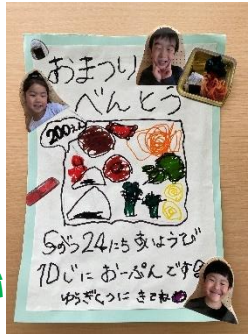 おまつり
べんとう
200えん
6がつ24にち すいようび
10じに おーぷんです
ゆうぎしつに きてね